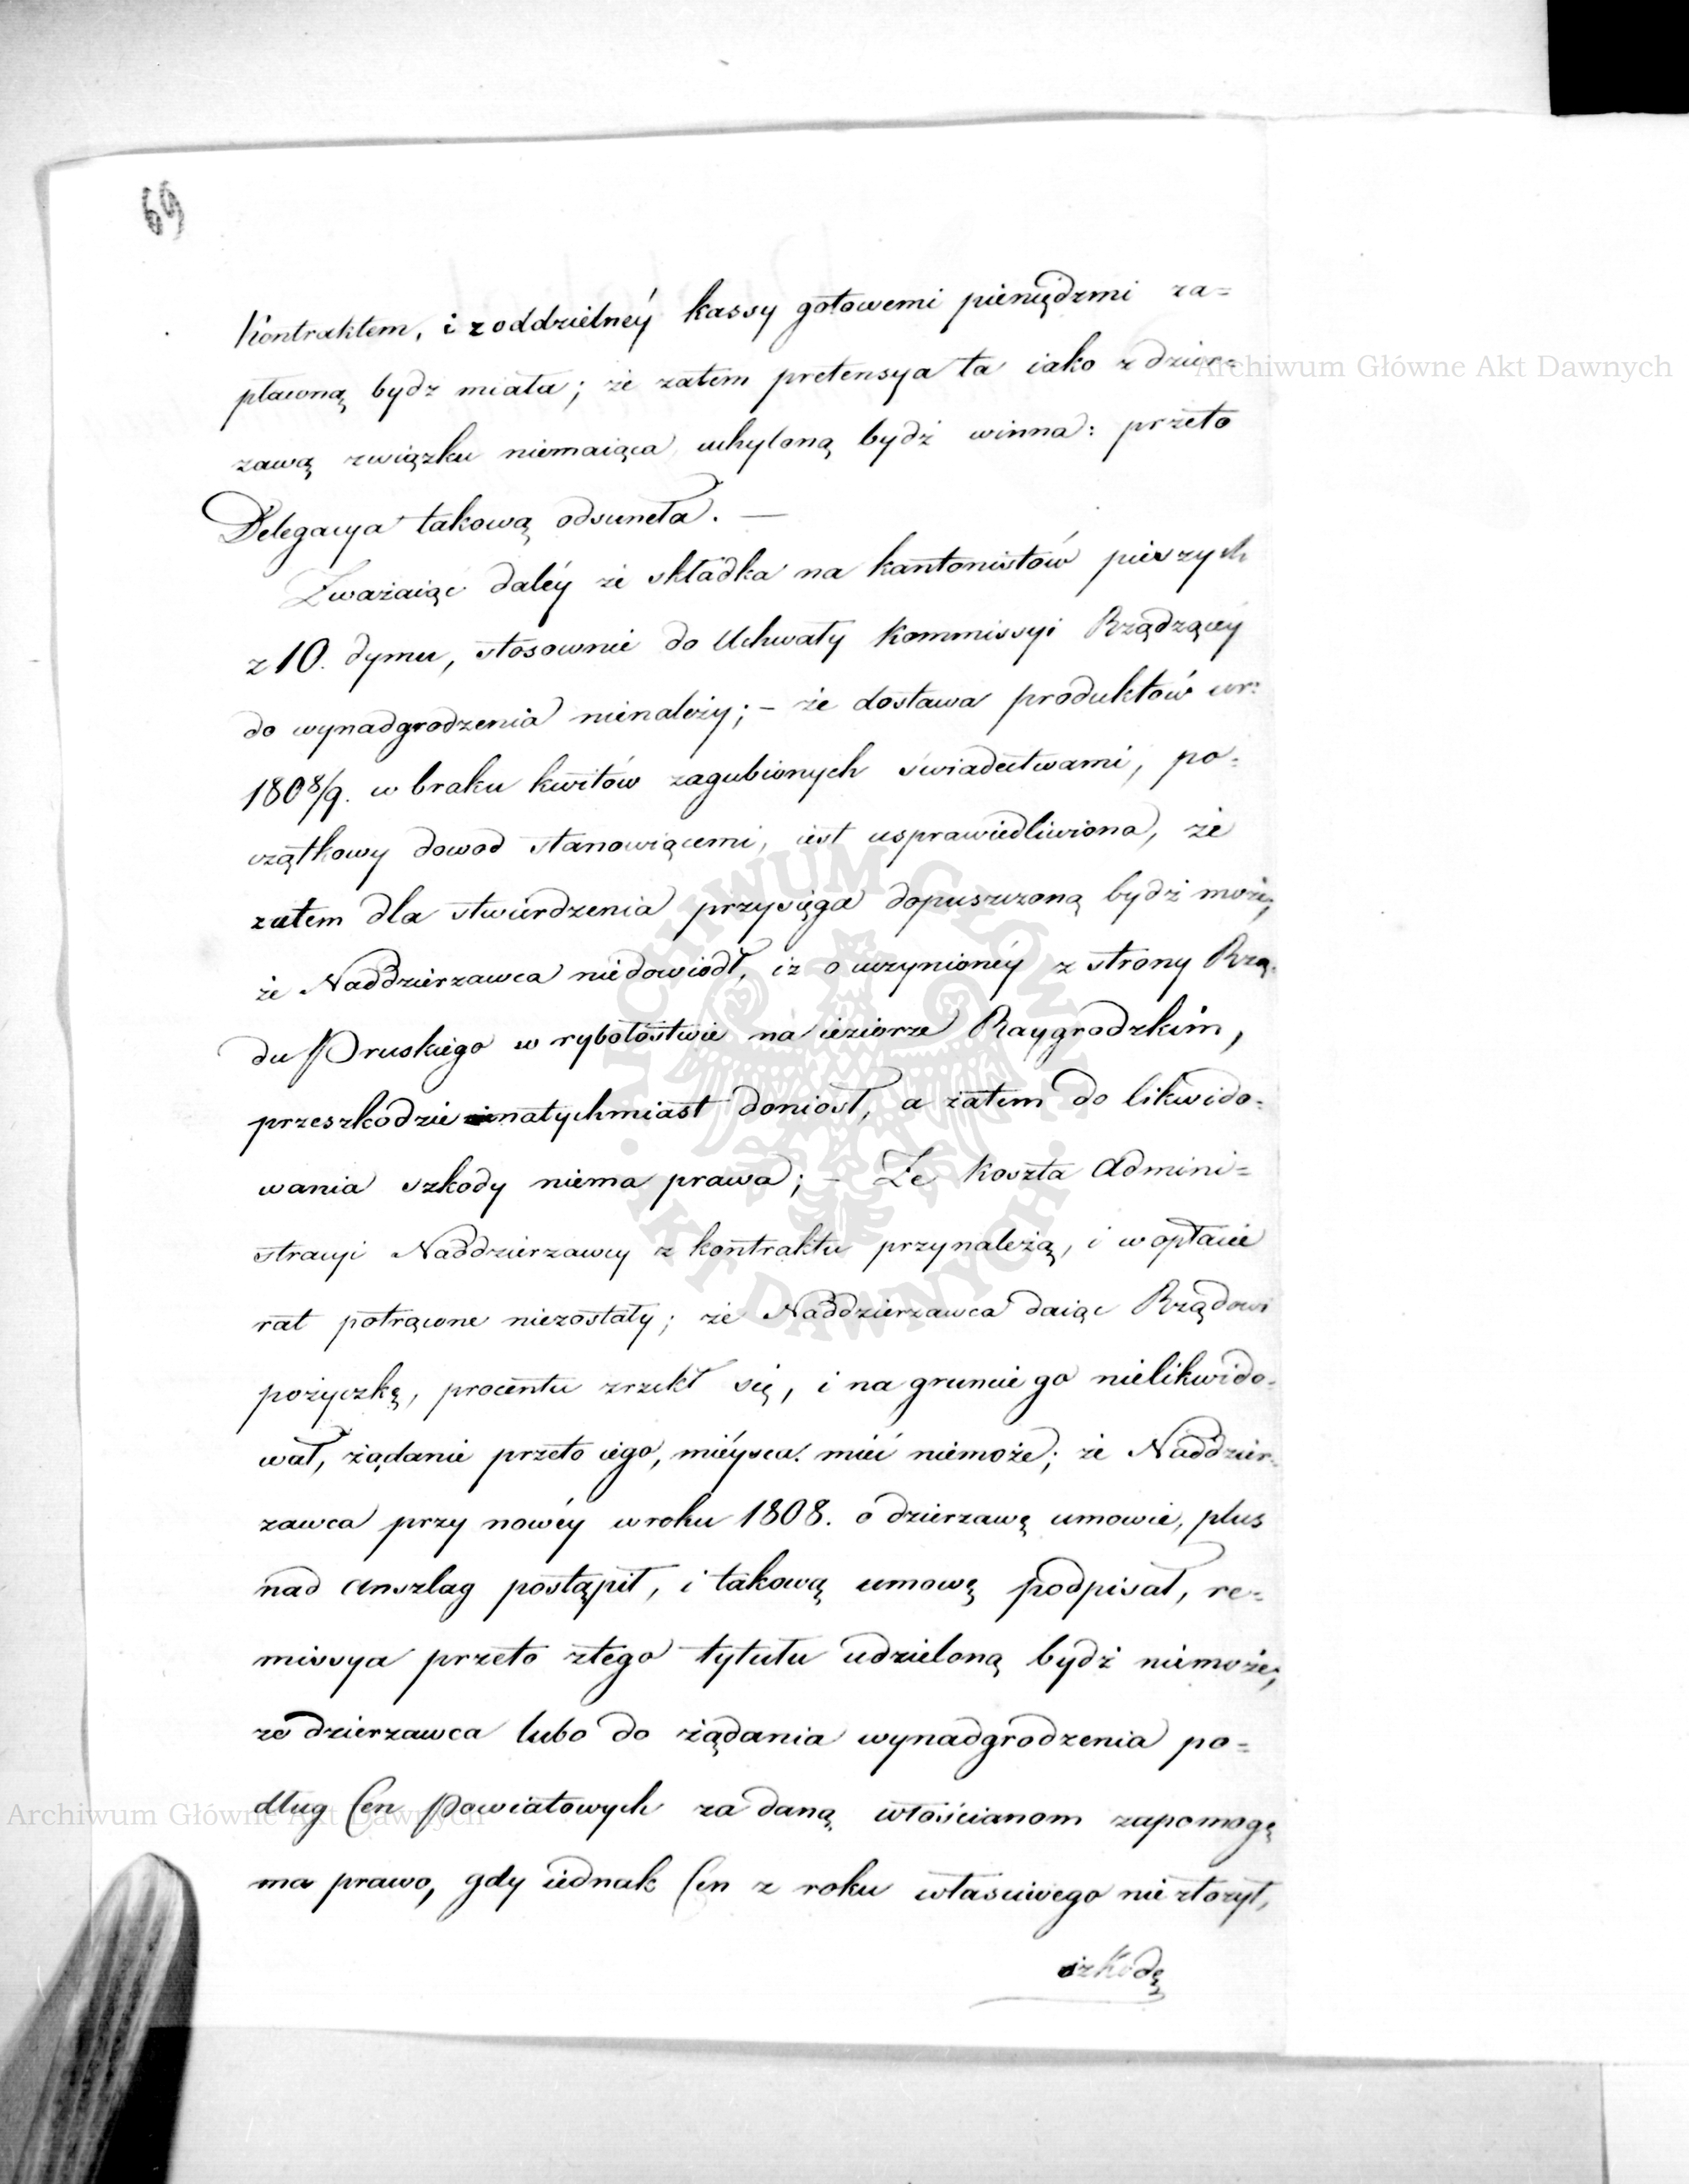 69
Kontraktem, i z oddzielnéy kassy gotowemi pieniędzmi za=
płaconą bydz miała; że zatem pretensya ta iako z dzier=
Archiwum Główne Akt Dawnych
zawą związku niemaiąca uchyloną bydź winna: przeto
Delegacya takową odsuneła. —
Zważaiąc daléy że składka na kantonistów pieszych
z 10. dymu, stosownie do Uchwały Kommissyi Rządzącéy
do wynadgrodzenia nienależy; – że dostawa produktów w r:
1808/9. w braku kwitów zagubionych świadectwami, po=
czątkowy dowod stanowiącemi, iest usprawiedliwiona, że
zatem dla stwierdzenia przysięga dopuszczoną bydź może;
że Naddzierzawca niedowiodł, iż o uczynionéy z strony Rzą=
du Pruskiego w rybołóstwie na ieziorze Raygrodzkim,
przeszkodzie natychmiast doniosł, a zatem do likwido=
wania szkody niema prawa; – Ze koszta Admini=
stracyi Naddzierzawcy z kontraktu przynależą, i w opłacie
rat potrącone niezostały; że Naddzierzawca daiąc Rządowi
pożyczkę, procentu zrzekł się, i na gruncie go nielikwido=
wał, żądanie przeto iego, miéysca mieć niemoże; że Naddzier=
zawca przy nowéy w roku 1808. o dzierzawę umowie, plus
nad Anszlag postąpił, i takową umowę podpisał, re=
missya przeto z tego tytułu udzieloną bydź niemoże;
ze dzierzawca lubo do żądania wynadgrodzenia po=
dług Cen Powiatowych za daną włościanom zapomogę
Archiwum Główne Akt Dawnych
ma prawo, gdy iednak Cen z roku własciwego nie złozył,
szkodę
ARCHIWUM GŁÓWNE · AKT DAWNYCH ·